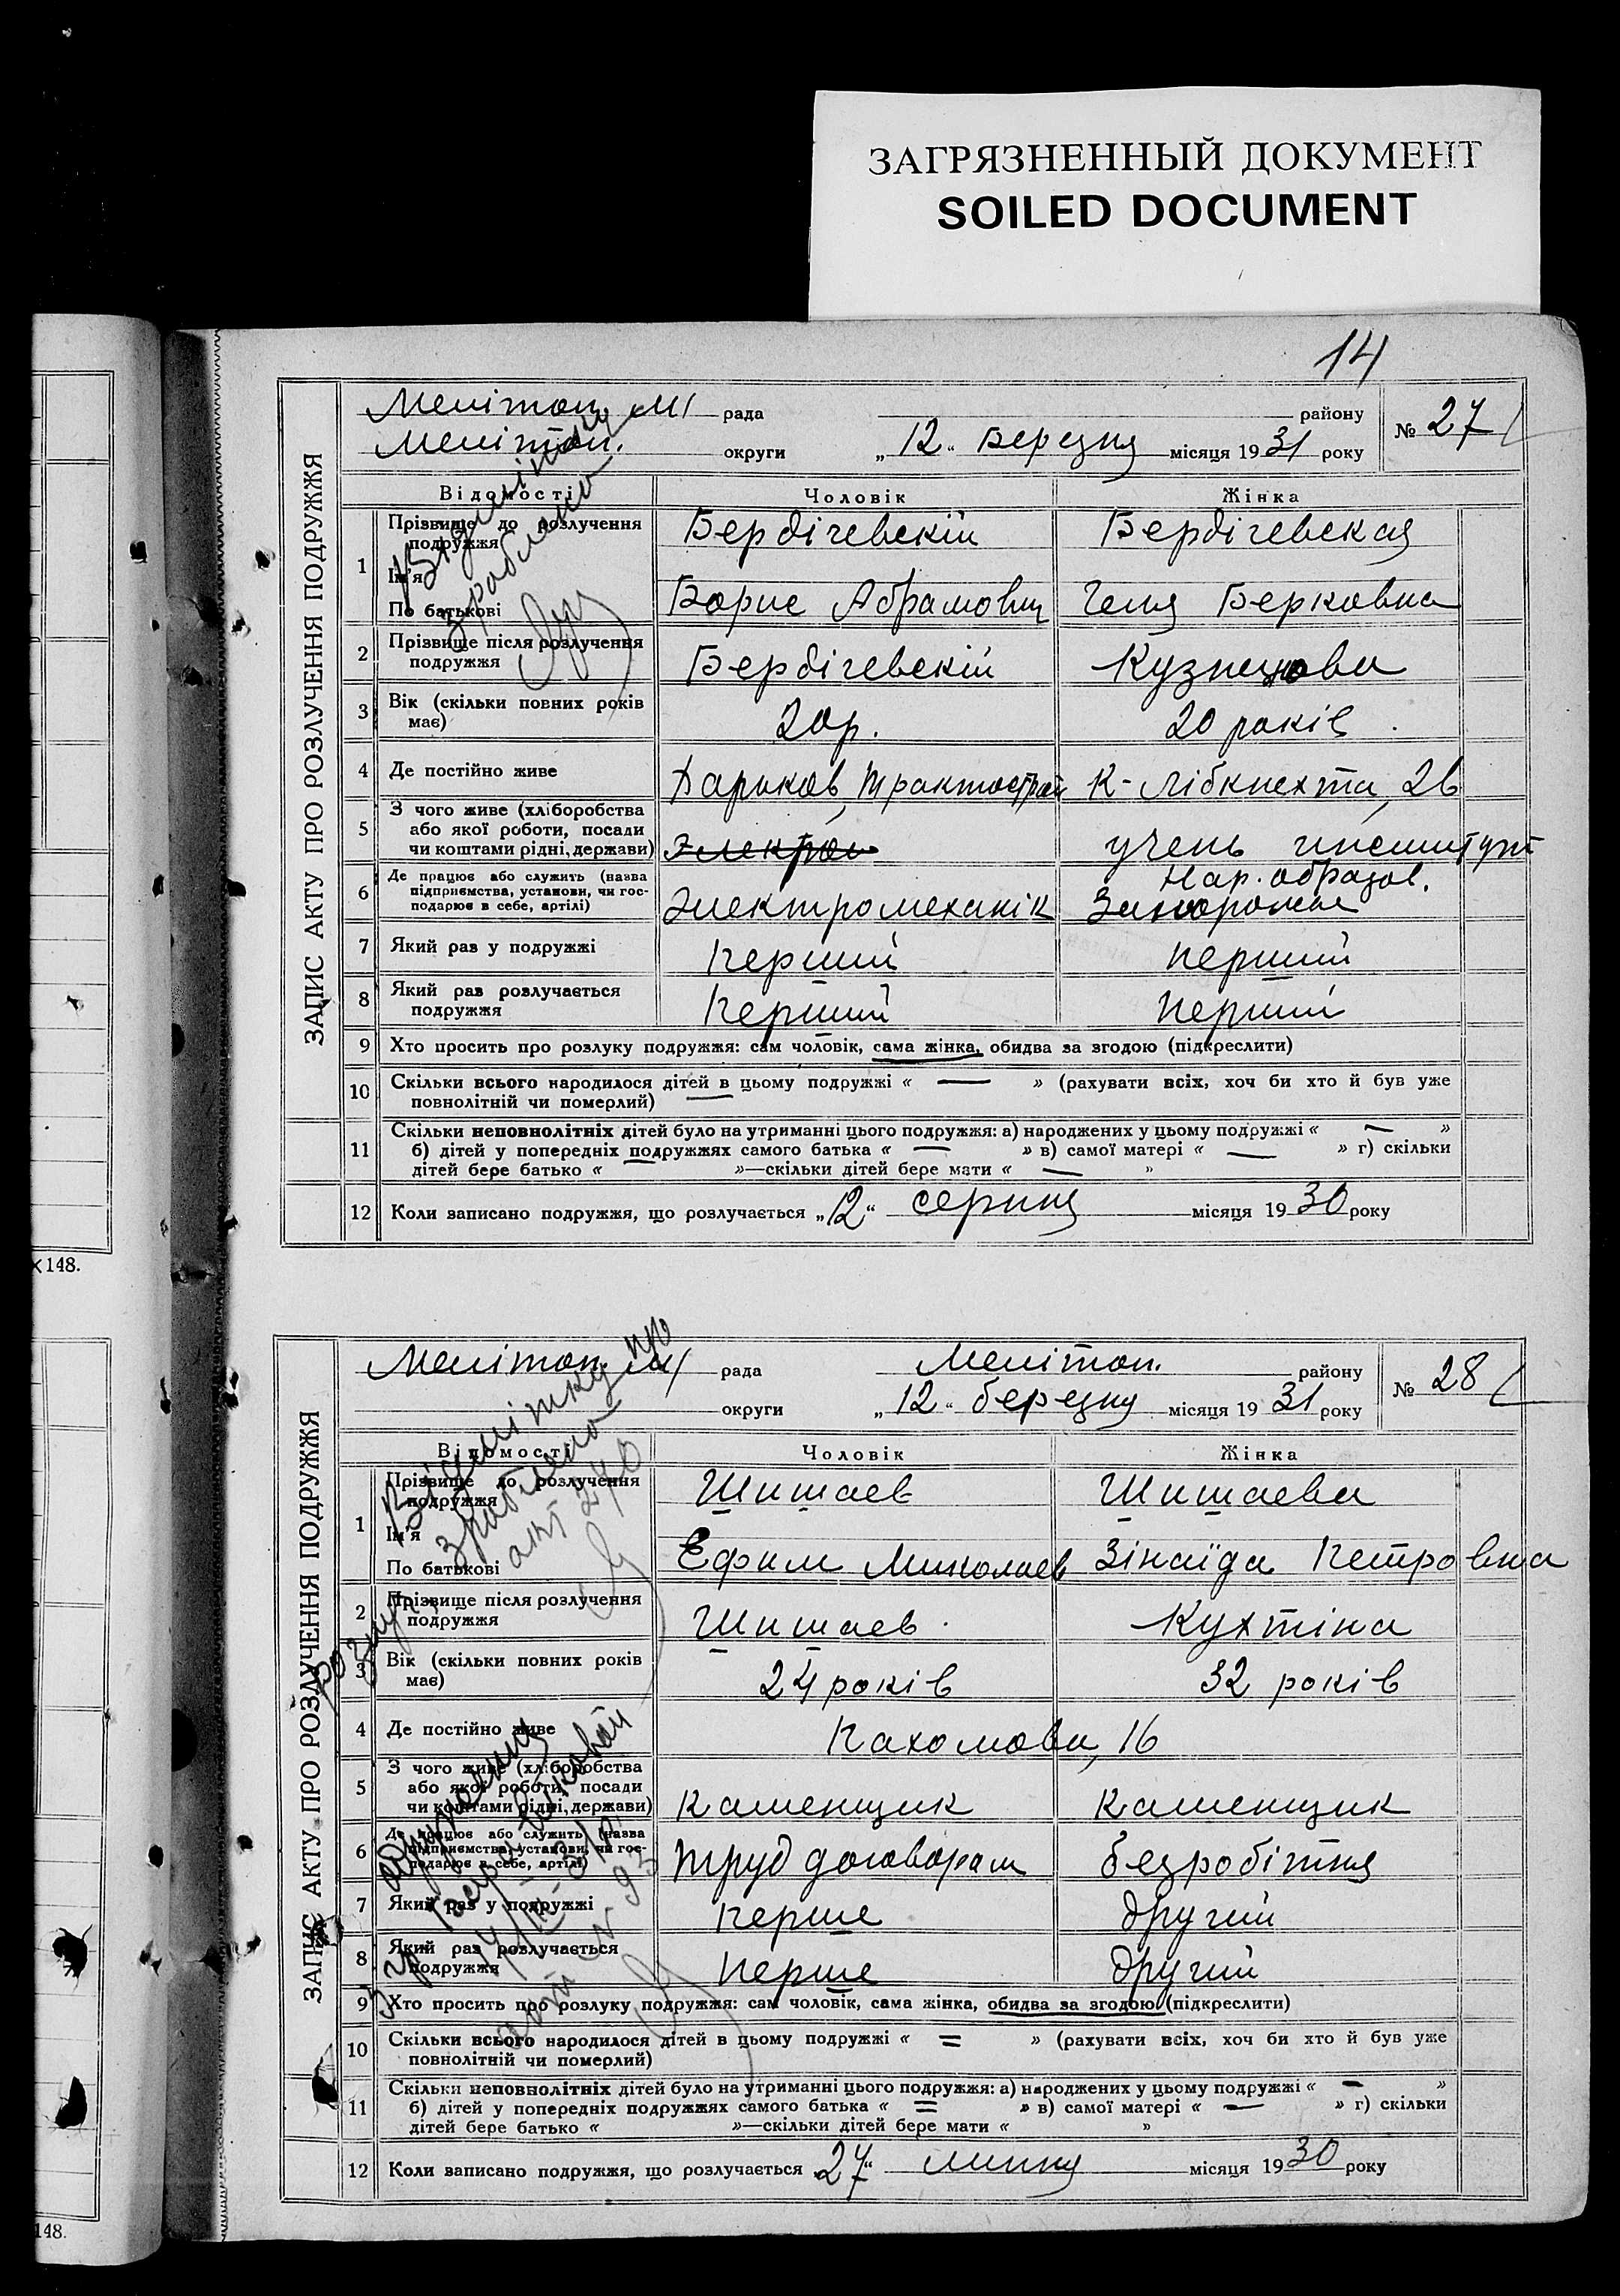 ЗАГРЯЗНЕННЫЙ ДОКУМЕНТ
SOILED DOCUMENT
14
ЗАПИС АКТУ ПРО РОЗЛУЧЕННЯ ПОДРУЖЖЯ
Мелітоп. М/ рада района району
Мелітоп. округи „12“ Березня місяця 1931 року
№ 27
Відомості Чоловік Жінка
1 Прізвище до розлучення подружжя Бердічевскій Бердічевская
Ім'я
По батькові Борис Абрамович Геня Берковна
2 Прізвище після розлучення
подружжя Бердічевскій Кузнецова
3 Вік (скільки повних років
має) 20р. 20 років
4 Де постійно живе Харьков, Трактострой К-Лібкнехта, 26
5 З чого живе (хліборобства
або якої роботи, посади
чи коштами рідні, держави) учень институт
Нар. образов.
6 Де працює або служить (назва
підприємства, установи, чи гос-
подарює в себе, артілі) Электромеханік Запорожье
7 Який раз у подружжі перший перший
8 Який раз розлучається
подружжя перший перший
9 Хто просить про розлуку подружжя: сам чоловік, сама жінка, обидва за згодою (підкреслити)
10 Скільки всього народилося дітей в цьому подружжі « — » (рахувати всіх, хоч би хто й був уже
повнолітній чи померлий)
11 Скільки неповнолітніх дітей було на утриманні цього подружжя: а) народжених у цьому подружжі « — »
б) дітей у попередніх подружжях самого батька « — » в) самої матері « — » г) скільки
дітей бере батько « »—скільки дітей бере мати « — »
12 Коли записано подружжя, що розлучається „12“ серпня місяця 1930 року
Відмітку
зроблено
×148.
ЗАПИС АКТУ ПРО РОЗЛУЧЕННЯ ПОДРУЖЖЯ
Мелітоп. М/ рада Мелітоп. району
округи „12“ березня місяця 1931 року
№ 28
Відомості Чоловік Жінка
1 Прізвище до розлучення
подружжя Шишаев Шишаева
Ім'я
По батькові Ефим Миколаев Зінаїда Петровна
2 Прізвище після розлучення
подружжя Шишаев Кухтіна
3 Вік (скільки повних років
має) 24 років 32 років
4 Де постійно живе Пахомова, 16
5 З чого живе (хліборобства
або якої роботи, посади
чи коштами рідні, держави) Каменщик Каменщик
6 Де працює або служить (назва
підприємства, установи, чи гос-
подарює в себе, артілі) труд договорам безробітня
7 Який раз у подружжі перше другий
8 Який раз розлучається
подружжя перше другий
9 Хто просить про розлуку подружжя: сам чоловік, сама жінка, обидва за згодою (підкреслити)
10 Скільки всього народилося дітей в цьому подружжі « = » (рахувати всіх, хоч би хто й був уже
повнолітній чи померлий)
11 Скільки неповнолітніх дітей було на утриманні цього подружжя: а) народжених у цьому подружжі « — »
б) дітей у попередніх подружжях самого батька « = » в) самої матері « — » г) скільки
дітей бере батько « »—скільки дітей бере мати « »
12 Коли записано подружжя, що розлучається „27“ липня місяця 1930 року
Відмітку про
зроблено
акт 240
148.